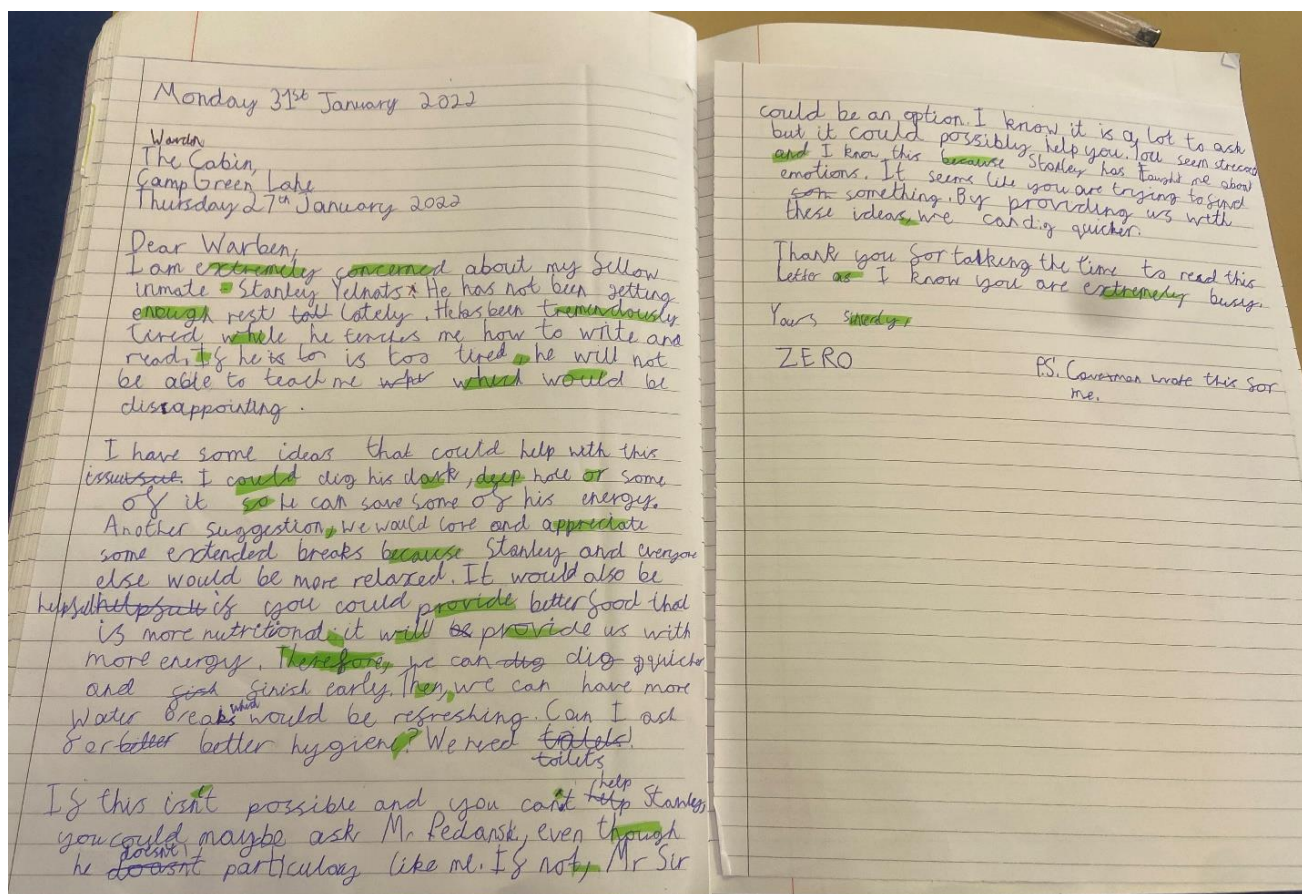 Monday 31st January 2022
Wardn
The Cabin,
Camp Green Lake
Thursday 27th January 2022
Dear Warben,
I am extremely concerned about my fellow
inmate - Stanley Yelnats. He has not been getting
enough rest lately. He has been tremendously
tired while he teaches me how to write and
read. If he is too tired, he will not
be able to teach me which would be
dissappointing.
I have some ideas that could help with this
issue. I could dig his dark, deep hole or some
of it so he can save some of his energy.
Another suggestion, we would love and appreciate
some extended breaks because Stanley and everyone
else would be more relaxed. It would also be
helpful if you could provide better food that
is more nutritional; it will provide us with
more energy. Therefore, we can dig quicker
and finish early. Then, we can have more
water breaks which would be refreshing. Can I ask
for better hygiene? We need
toilets
If this isn't possible and you can't help Stanley,
you could maybe ask Mr. Pedansk, even though
he doesn't particulary like me. If not, Mr Sir
could be an option. I know it is a lot to ask
but it could possibly help you. You seem
and I know this because Stanley has taught me about
emotions. It seems like you are trying to find
something. By providing us with
these ideas, we can dig quicker.
Thank you for talking the time to read this
letter as I know you are extremely busy.
Yours
ZERO
P.S. Caveman wrote this for
me.